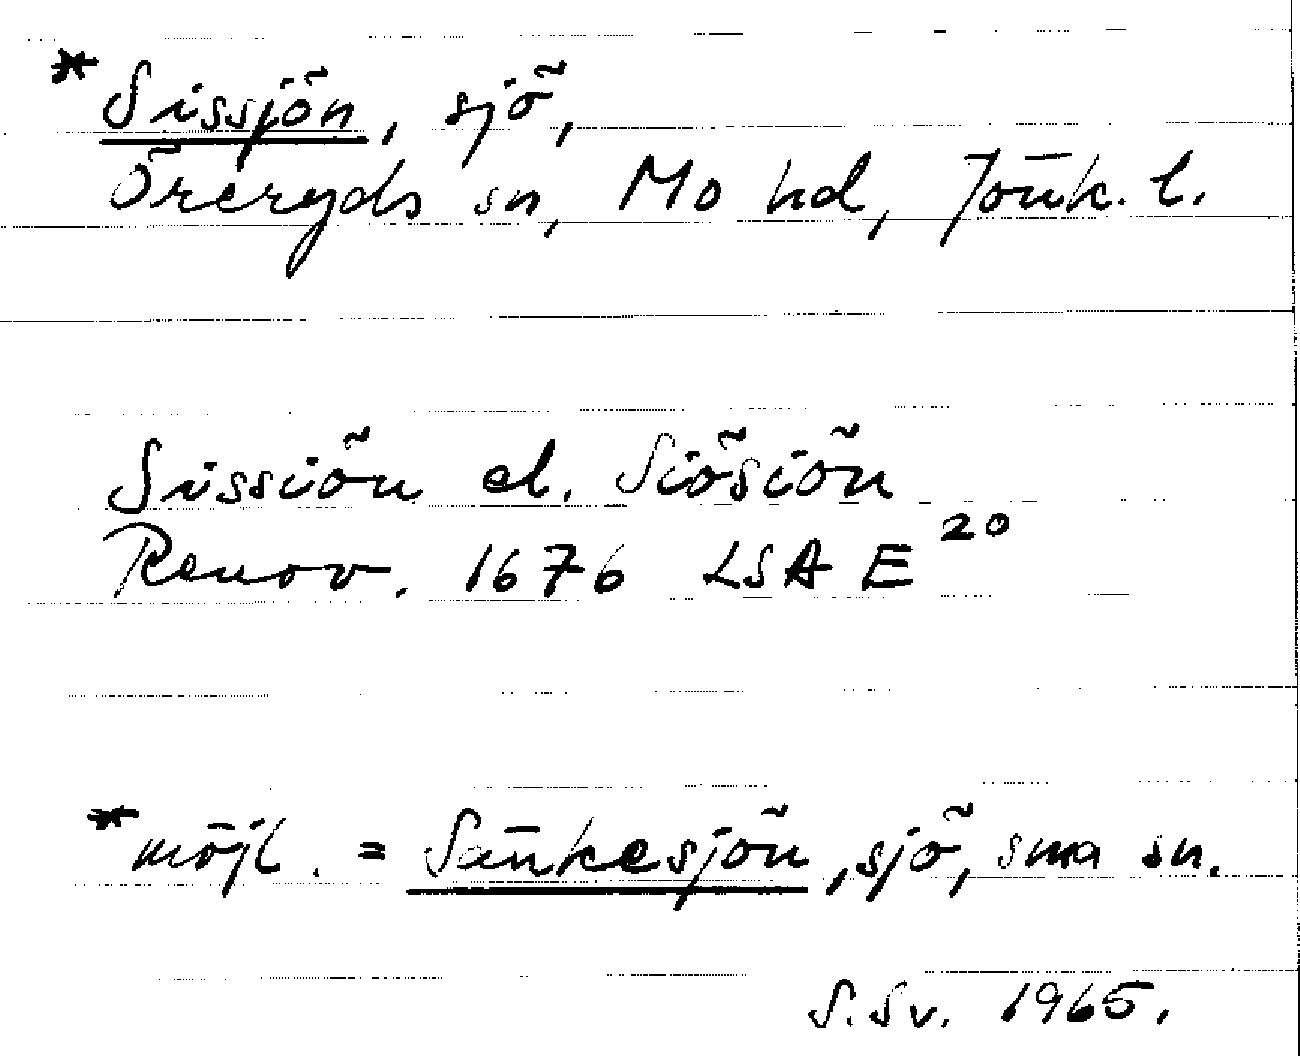 *Sissjön, sjö,
Öreryds sn, Mo hd, Jönk. l.
Sissiön el. Siösiön
Renov. 1676 LSA E 20
*möjl. = Sänkesjön, sjö, sma sn.
S. Sv. 1965.